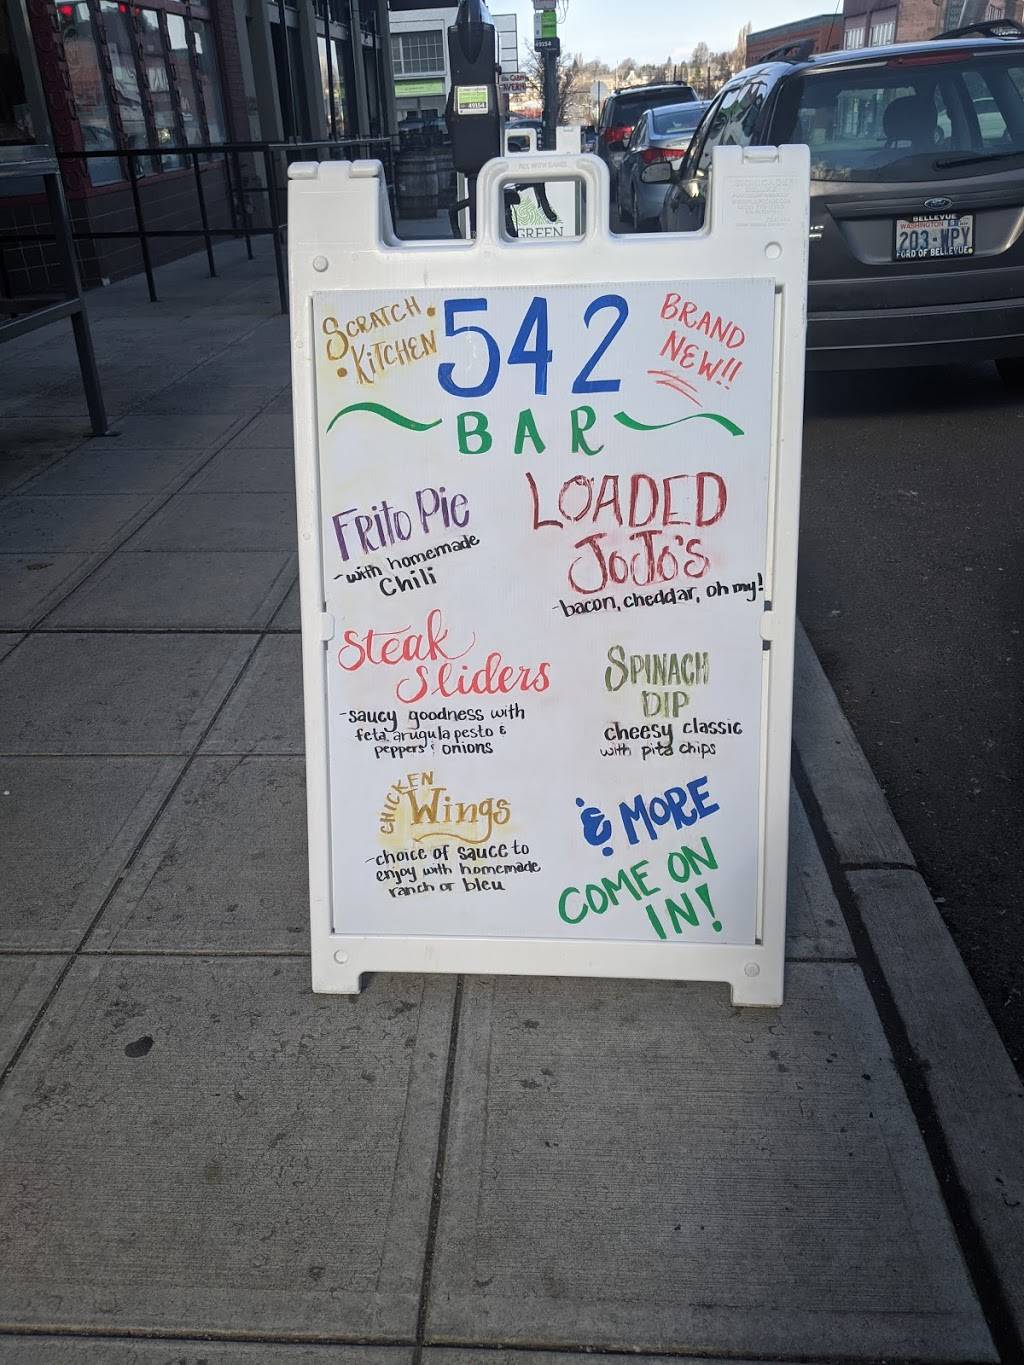 SCRATCH •
• KITCHEN
542
BRAND
NEW!!
BAR
Frito Pie
-with homemade
Chili
LOADED
JoJo's
-bacon, cheddar, oh my!
Steak
Sliders
-saucy goodness with
feta, arugula pesto &
peppers & onions
SPINACH
DIP
cheesy classic
with pita chips
CHICKEN
Wings
-choice of sauce to
enjoy with homemade
ranch or bleu
& MORE
COME ON
IN!
GREEN
49154
49154
TAVERN
BELLEVUE
WASHINGTON
203-WPY
FORD OF BELLEVUE
Ford